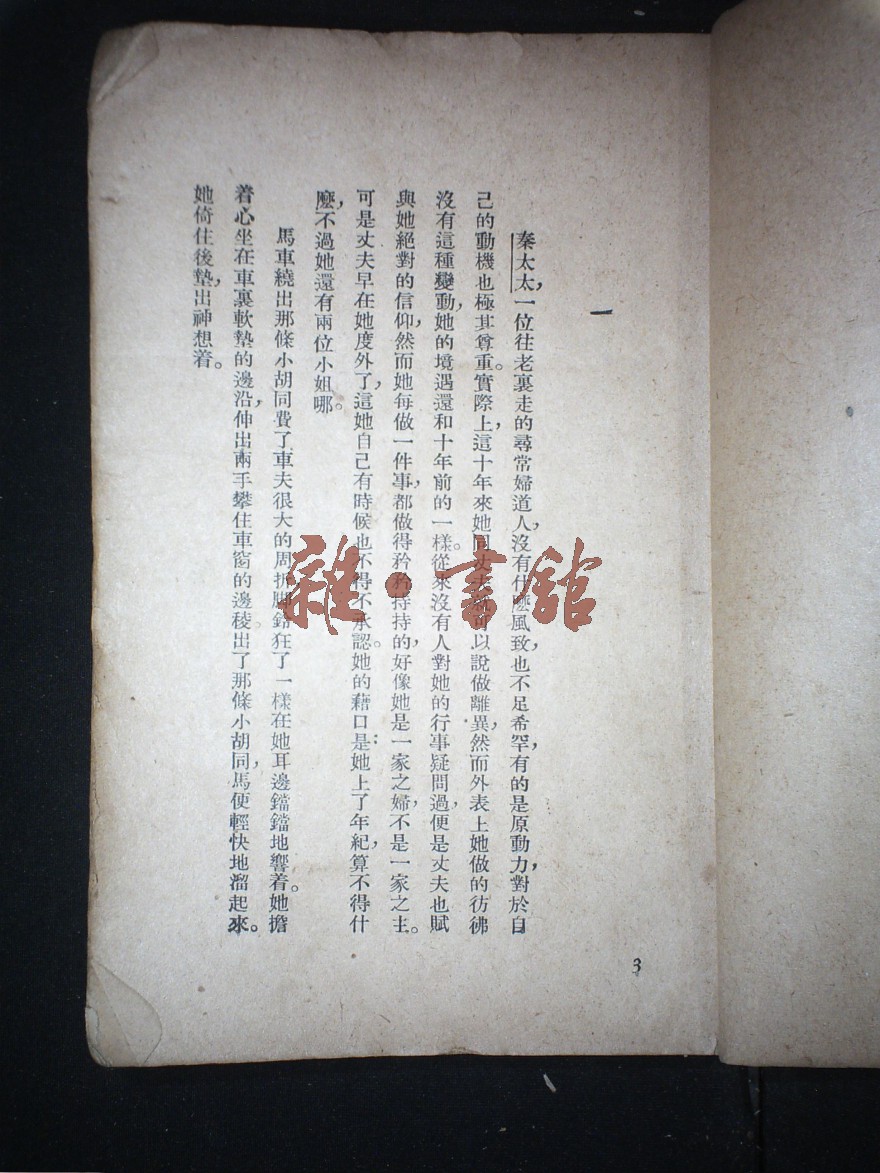 一
秦太太，一位往老裏走的尋常婦道人，沒有什麼風致，也不足希罕，有的是原動力，對於自
己的動機也極其尊重。實際上，這十年來她同丈夫可以說做離異，然而外表上她做的彷彿
沒有這種變動，她的境遇還和十年前的一樣。從來沒有人對她的行事疑問過，便是丈夫也賦
與她絕對的信仰，然而她每做一件事，都做得矜矜持持的，好像她是一家之婦，不是一家之主。
可是丈夫早在她度外了，這她自己有時候也不得不承認。她的藉口是：她上了年紀，算不得什
麼，不過她還有兩位小姐哪。
馬車繞出那條小胡同費了車夫很大的周折，脚鈴狂了一樣在她耳邊鐺鐺地響着。她擔
着心坐在車裏軟墊的邊沿，伸出兩手攀住車窗的邊稜。出了那條小胡同，馬便輕快地溜起來。
她倚住後墊，出神想着。
3
雜·書館